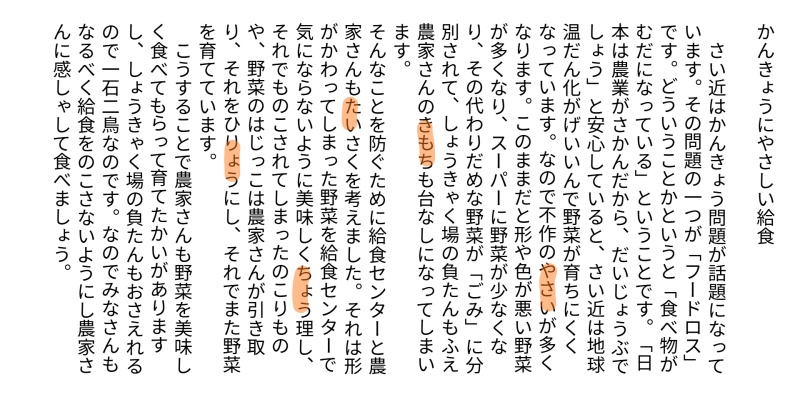 かんきょうにやさしい給食
さい近はかんきょう問題が話題になって
います。その問題の一つが「フードロス」
です。どういうことかというと「食べ物が
むだになっている」ということです。「日
本は農業がさかんだから、だいじょうぶで
しょう」と安心していると、さい近は地球
温だん化がげいいんで野菜が育ちにくく
なっています。なので不作のやさいが多く
なります。このままだと形や色が悪い野菜
が多くなり、スーパーに野菜が少なくな
り、その代わりだめな野菜が「ごみ」に分
別されて、しょうきゃく場の負たんもふえ
農家さんのきもちも台なしになってしまい
ます。
そんなことを防ぐために給食センターと農
家さんもたいさくを考えました。それは形
がかわってしまった野菜を給食センターで
気にならないように美味しくちょう理し、
それでものこされてしまったのこりもの
や、野菜のはじっこは農家さんが引き取
り、それをひりょうにし、それでまた野菜
を育てています。
こうすることで農家さんも野菜を美味し
く食べてもらって育てたかいがあります
し、しょうきゃく場の負たんもおさえれる
ので一石二鳥なのです。なのでみなさんも
なるべく給食をのこさないようにし農家さ
んに感しゃして食べましょう。